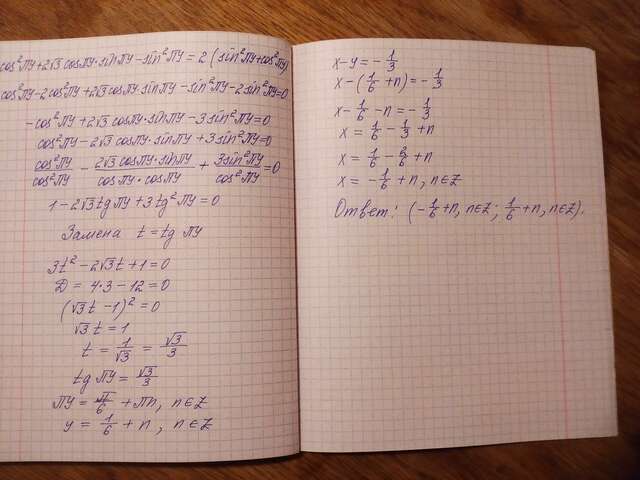 cos²πy + 2√3 cosπy · sinπy - sin²πy = 2 (sin²πy + cos²πy)
cos²πy - 2cos²πy + 2√3 cosπy sinπy - sin²πy - 2sin²πy = 0
-cos²πy + 2√3 cosπy · sinπy - 3sin²πy = 0
cos²πy - 2√3 cosπy · sinπy + 3sin²πy = 0
cos²πy/cos²πy - 2√3 cosπy · sinπy/cosπy · cosπy + 3sin²πy/cos²πy = 0
1 - 2√3 tg πy + 3 tg²πy = 0
Замена t = tg πy
3t² - 2√3t + 1 = 0
D = 4·3 - 12 = 0
(√3t - 1)² = 0
√3 t = 1
t = 1/√3 = √3/3
tg πy = √3/3
πy = π/6 + πn, n∈Z
y = 1/6 + n, n∈Z
x - y = -1/3
x - (1/6 + n) = -1/3
x - 1/6 - n = -1/3
x = 1/6 - 1/3 + n
x = 1/6 - 2/6 + n
x = -1/6 + n, n∈Z
Ответ: (-1/6 + n, n∈Z; 1/6 + n, n∈Z).